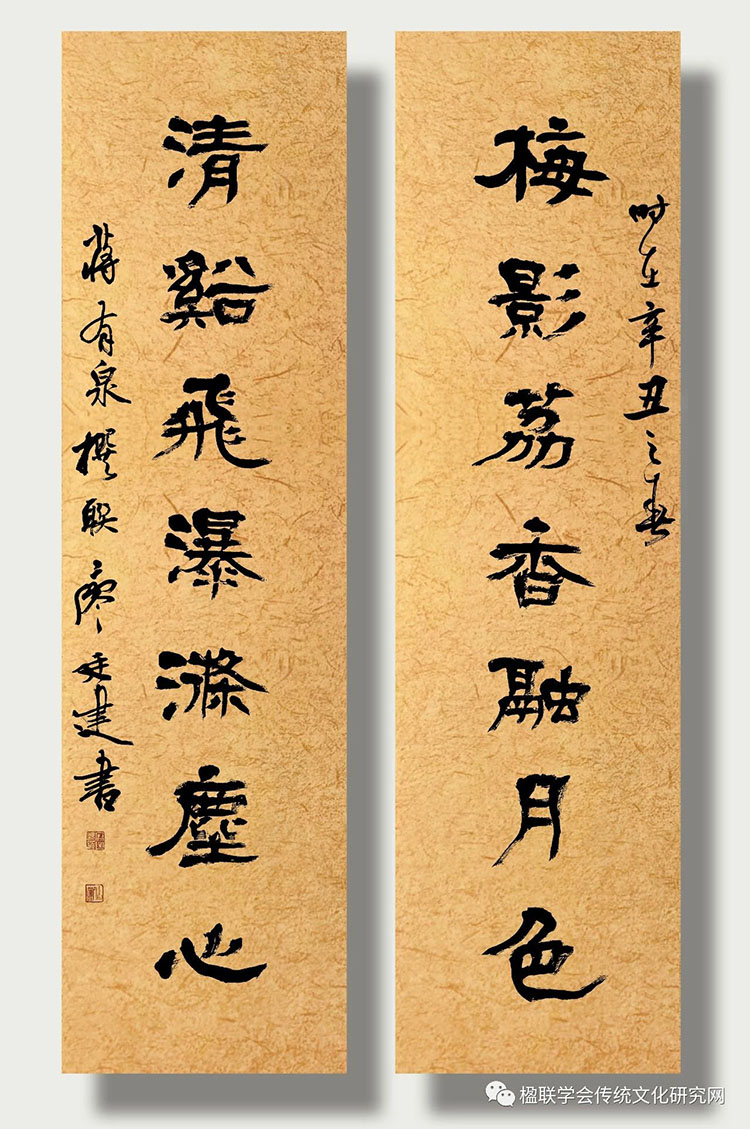 时在辛丑之春
梅影荔香融月色
清谿飛瀑滌塵心
蒋有泉撰联廖廷建书
楹联学会传统文化研究网